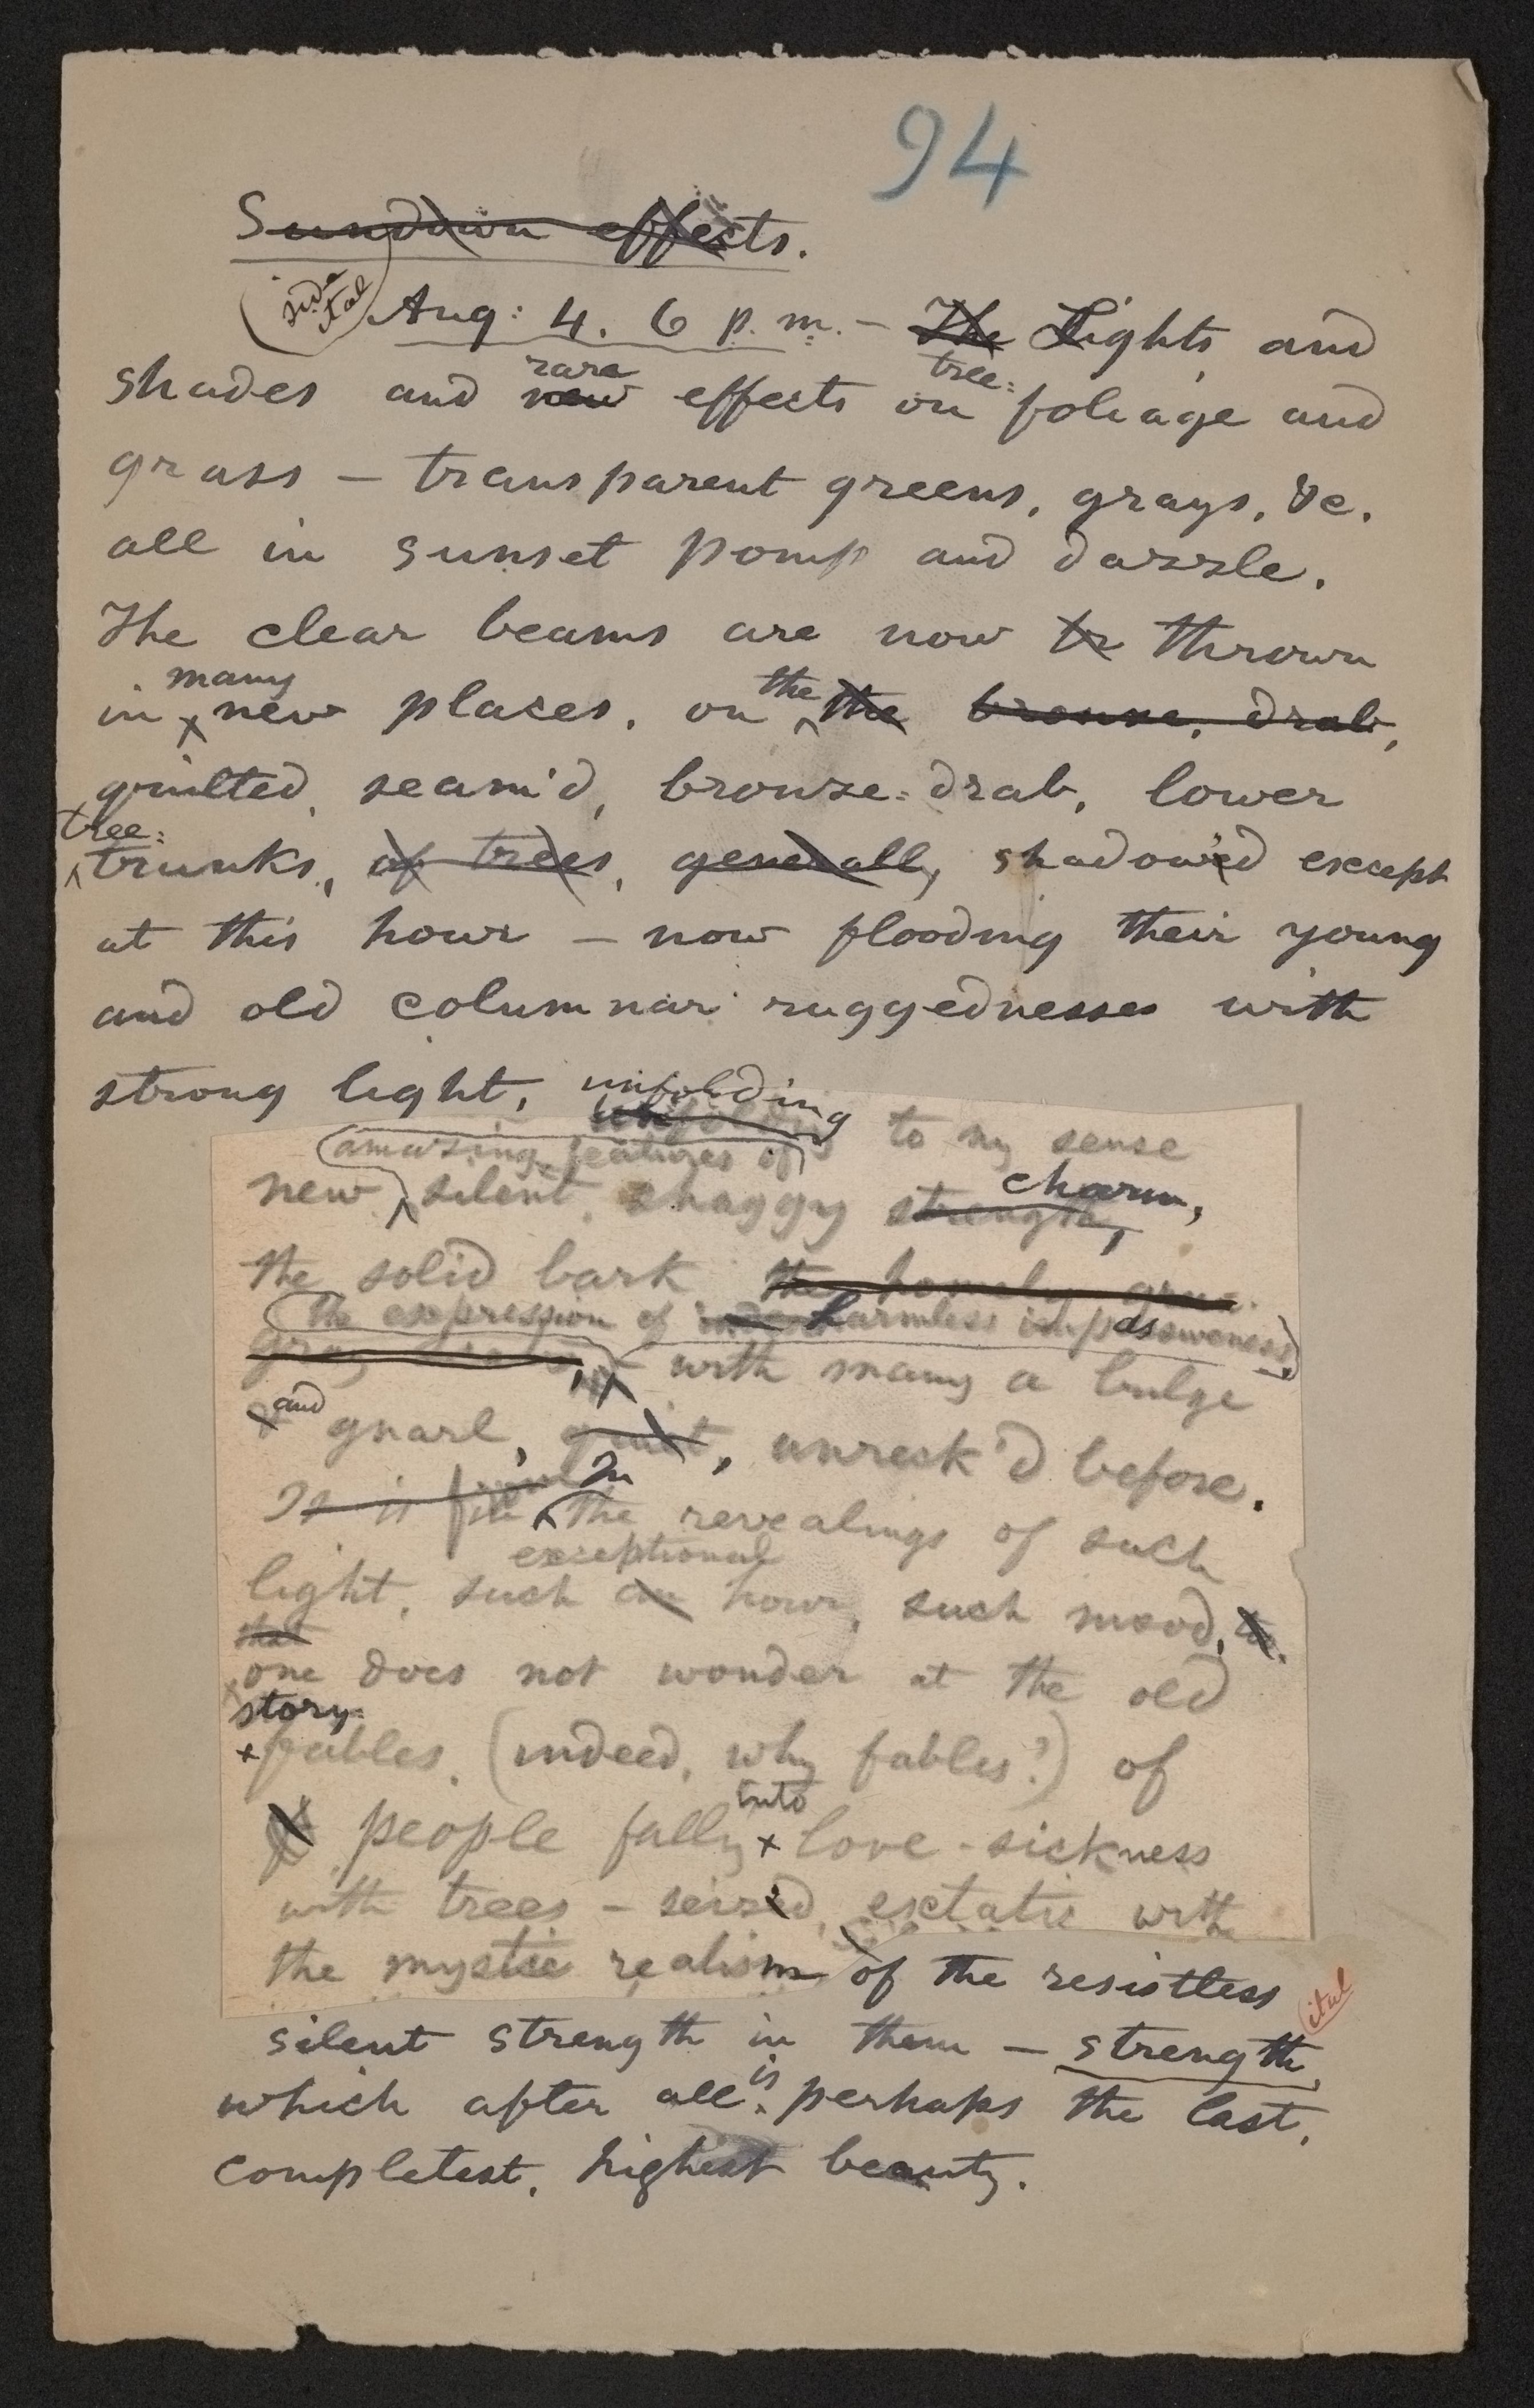 94
Sundown effects.
side ital
Aug: 4. 6 p. m. — The Lights and
rare tree=
shades and new effects on foliage and
grass — transparent greens, grays, &c.
all in sunset pomp and dazzle.
The clear beams are now tr thrown
many the
in new places, on the bronze, drab,
quilted, seam'd, bronze=drab, lower
tree=
trunks, of trees, generally, shadow'd except
at this hour — now flooding their young
and old columnar ruggednesses with
strong light, unfolding
to my sense
amazing features of
new silent, shaggy strength, charm,
the solid bark the homely
the expression of harmless impassiveness,
gray with many a bulge
and
gnarl, unreck'd before.
In
It is the revealings of such
exceptional
light, such an hour, such mood,
that
one does not wonder at the old
story=
fables, (indeed, why fables?) of
into
people fally love-sickness
with trees — seiz'd extatic with
the mystic realism of the resistless
ital
silent strength in them — strength,
is
which after all perhaps the last,
completest, highest beauty.